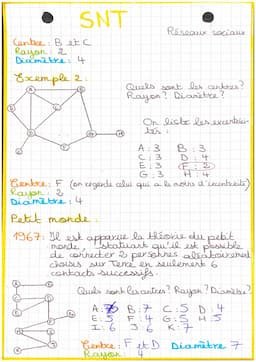 SNT
Réseaux sociaux
Centre: B et C
Rayon: 2
Diamètre: 4
Exemple 2:
Quels sont les centres?
Rayon? Diamètre?
On liste les excentrici-
tés:
A: 3 B: 3
C: 3 D: 4
E: 3 F: 2
G: 3 H: 4
Centre: F (on regarde celui qui a le moins d'excentricité)
Rayon: 2
Diamètre: 4
Petit monde:
1967: Il est apparue la théorie du petit
monde, statuant qu'il est possible
de connecter 2 personnes aléatoirement
choisies sur Terre en seulement 6
contacts successifs.
Quels sont les centres? Rayon? Diamètre?
B: 7 C: 5 D: 4
E: 5 F: 4 G: 5 H: 5
I: 6 J: 6 K: 7
Centre: F et D Diamètre 7
Rayon: 4